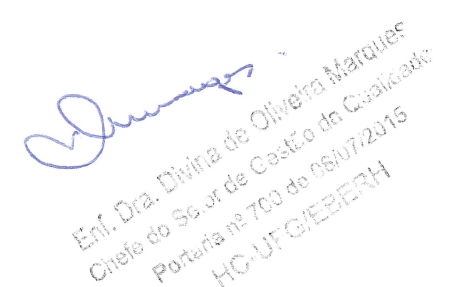 Enf. Dra. Divina de Oliveira Marques
Chefe do Setor de Gestão da Qualidade
Portaria nº 700 de 06/07/2015
HC-UFG/EBERH